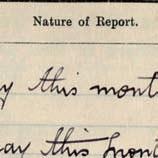 Nature of Report.
y this mont
ay this mon